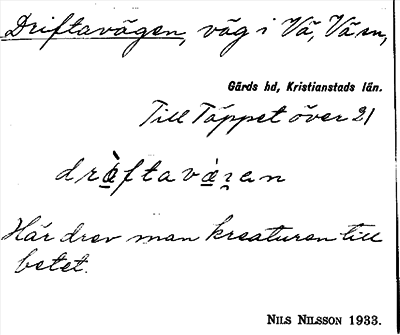 Driftavägen, väg i Vä, Vä sn,
Gärds hd, Kristianstads län.
Till Täppet över 21
Här drev man kreaturen till
betet.
NILS NILSSON 1933.